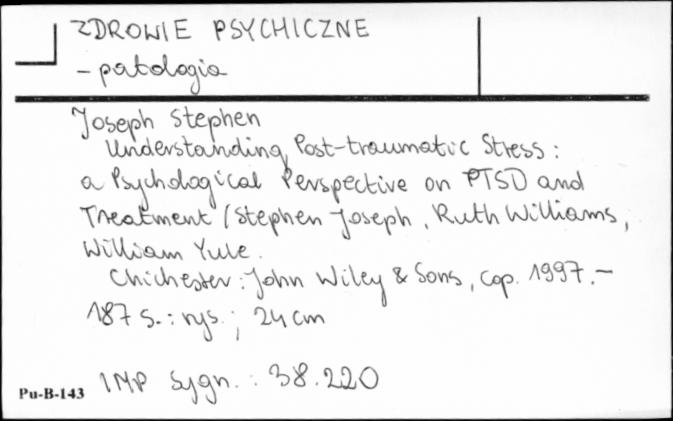 ZDROWIE PSYCHICZNE
- patologia
Joseph Stephen
Understanding Post-traumatic Stress :
a Psychological Perspective on PTSD and
Treatment / Stephen Joseph, Ruth Williams,
William Yule.
Chichester : John Wiley & Sons, cop. 1997. -
187 s. : rys. ; 24 cm
IMP Sygn. : 38.220
Pu-B-143